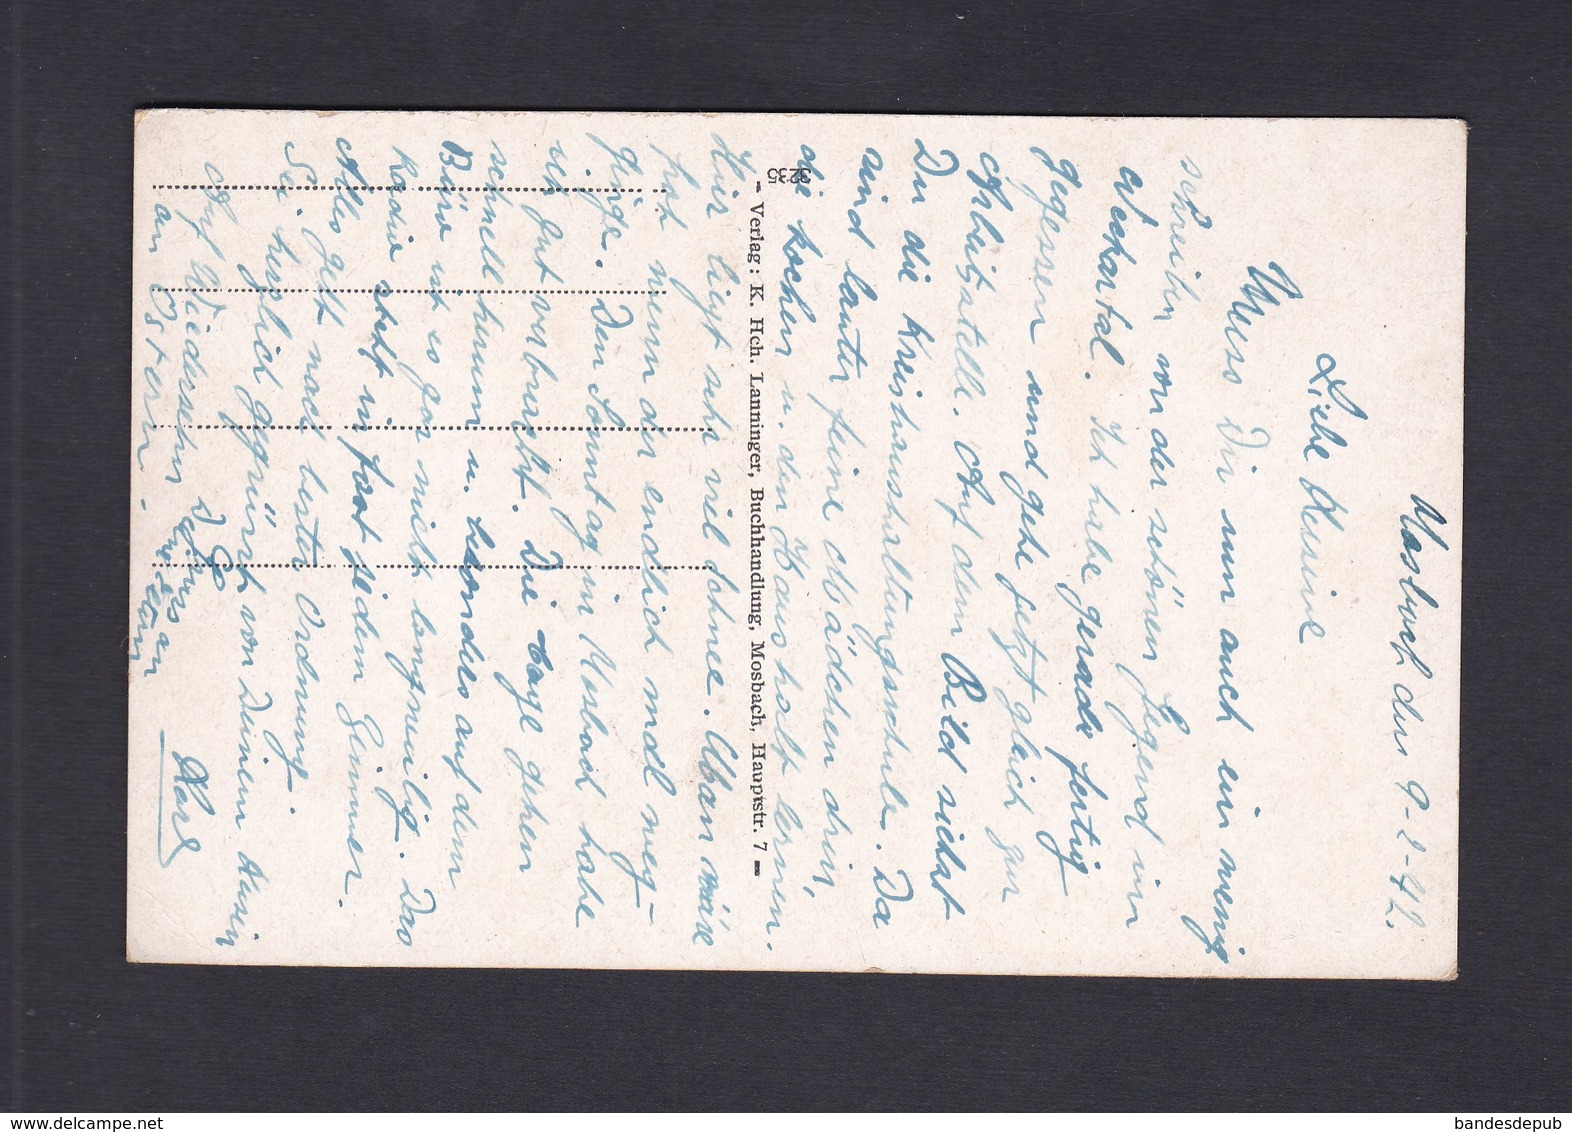 Mosbach den 9-2-42.
Liebe Kusine
Muss Dir nun auch ein wenig
schreiben von der schönen Gegend im
Neckartal. Ich habe gerade fertig
gegessen und gehe jetzt gleich zur
Arbeitstelle. Auf dem Bild siehst
Du die Kreishaushaltungsschule. Da
sind lauter feine Mädchen drin,
die kochen u. den Haushalt lernen.
Hier liegt sehr viel Schnee. Man wäre
froh wenn der endlich mal weg-
ginge. Den Sonntag in Mosbach habe
ich gut verbracht. Die Tage gehen
schnell herum u. besonders auf dem
Büro ist es gar nicht langweilig. Das
Radio steht in fast jedem Zimmer.
Alles geht nach bester Ordnung.
Sei herzlich gegrüsst von Deinem Kusin
Auf Wiedersehn
an Ostern.
3235
- Verlag: K. Hch. Lanninger, Buchhandlung, Mosbach, Hauptstr. 7 -
delcampe.net
bandesdepub